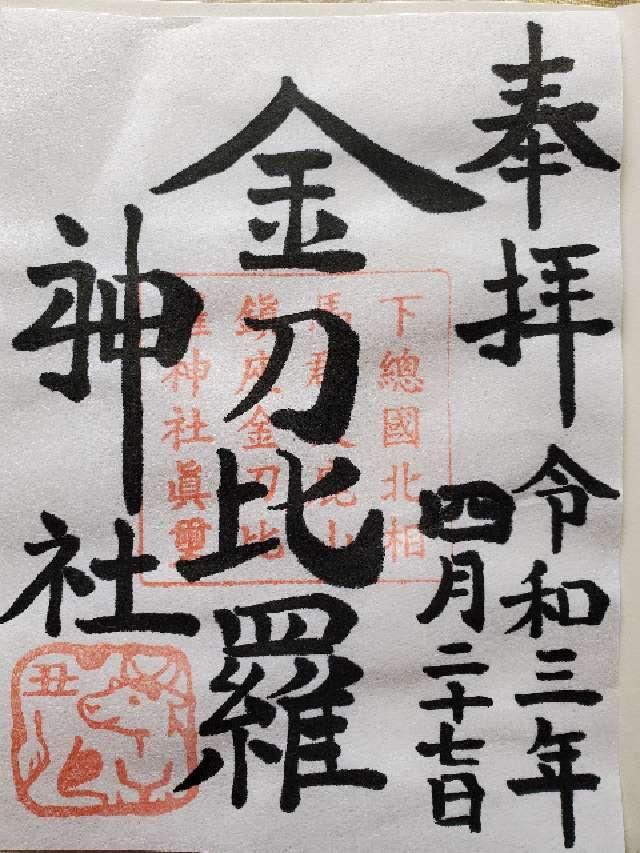 奉拝
令和三年
四月二十七日
金刀比羅
神社
下總國北相
馬郡 鹿山
鎮座金刀比
羅神社眞璽
丑